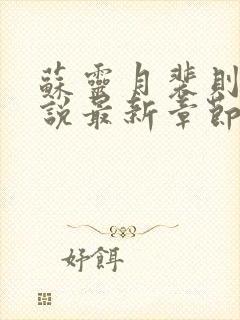 蘇靈月裴則
說最新章節
好餌